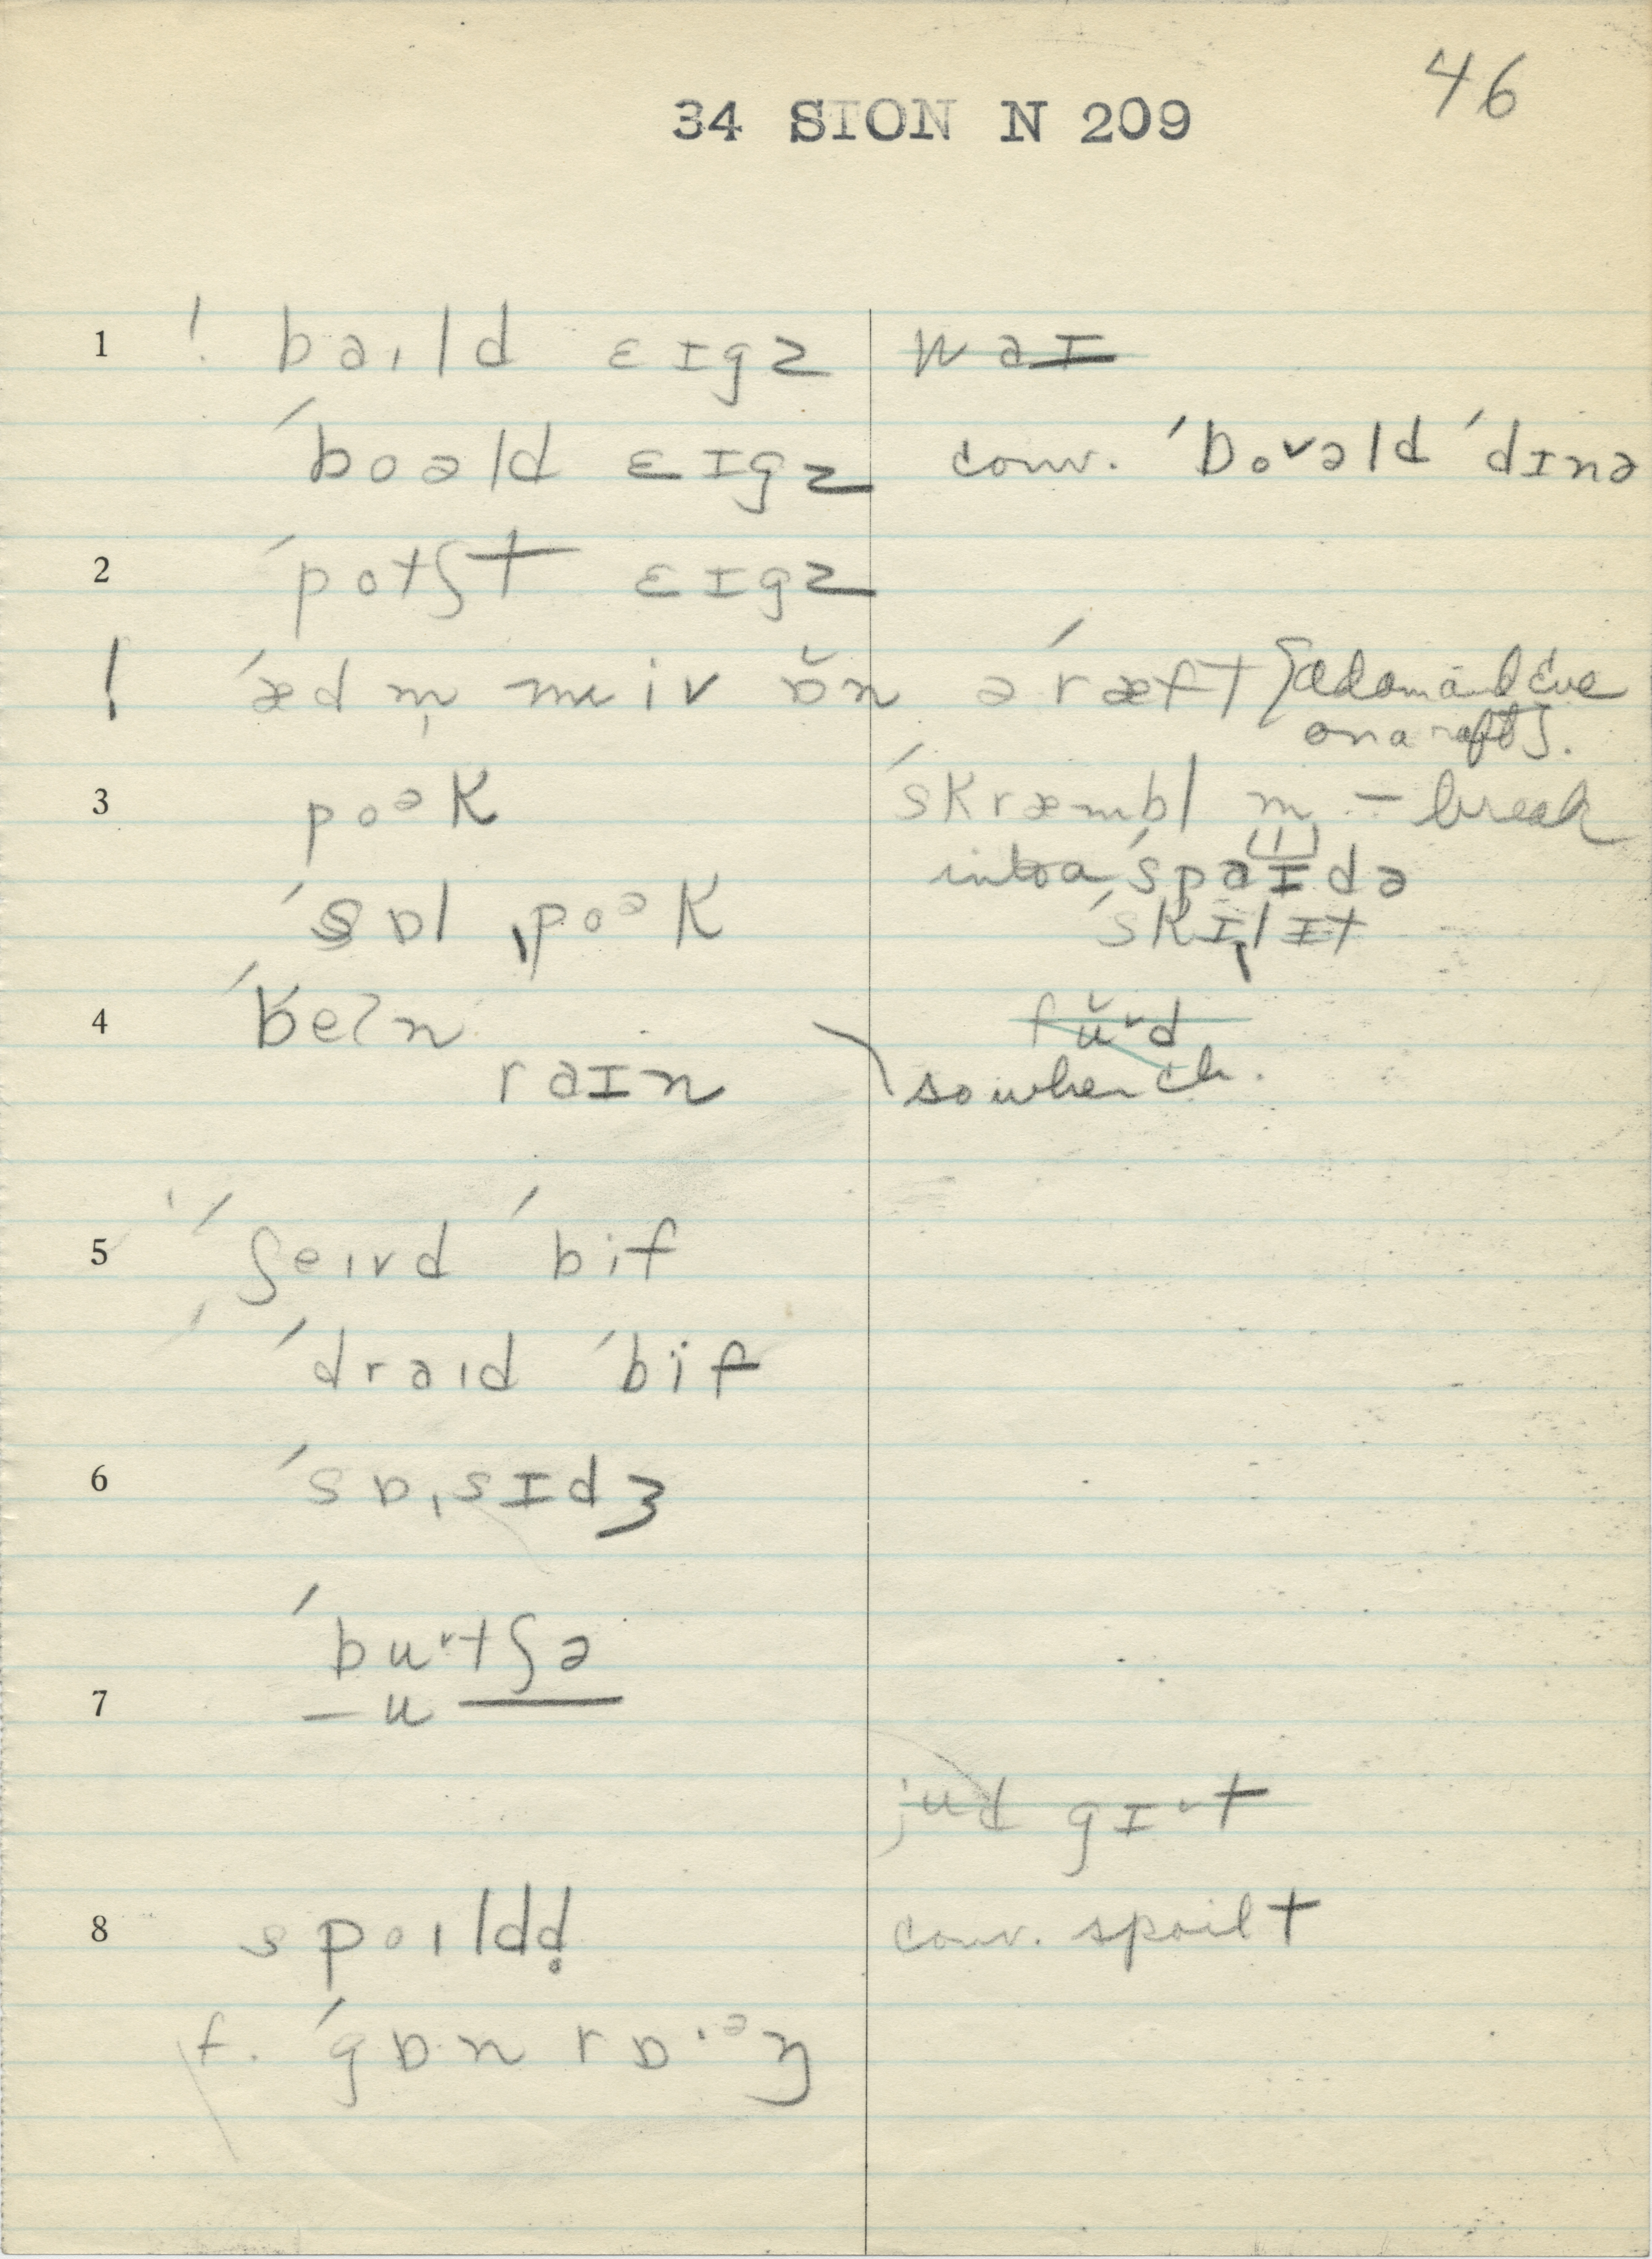 46
34 SION N 209
1 ! baɪld ɛɪgz waɪ
ˈboəld ɛɪgz conv. ˈboᵛəld ˈdɪnə
2 ˈpotʃt ɛɪgz
! ˈæd m̩ m iv ɒ̆n ə ˈræft [adam and Eve
on a raft].
3 poᵊk ˈskræmbl m – break
into a ˈspaɪdə
ˈsɒl ˌpoᵊk ˈskɪlɪt
4 ˈbeɪn fŭᵛd
raɪn so when ch.
5 ˈʃeɪvd ˈbif
ˈdraɪd ˈbif
6 ˈsɒˌsɪdʒ
ˈbuᵛtʃə
7 – u —
jud gɪᵛt
8 spoɪldd̥ conv. spoilt
f. ˈgɒn rɒˑᵊŋ